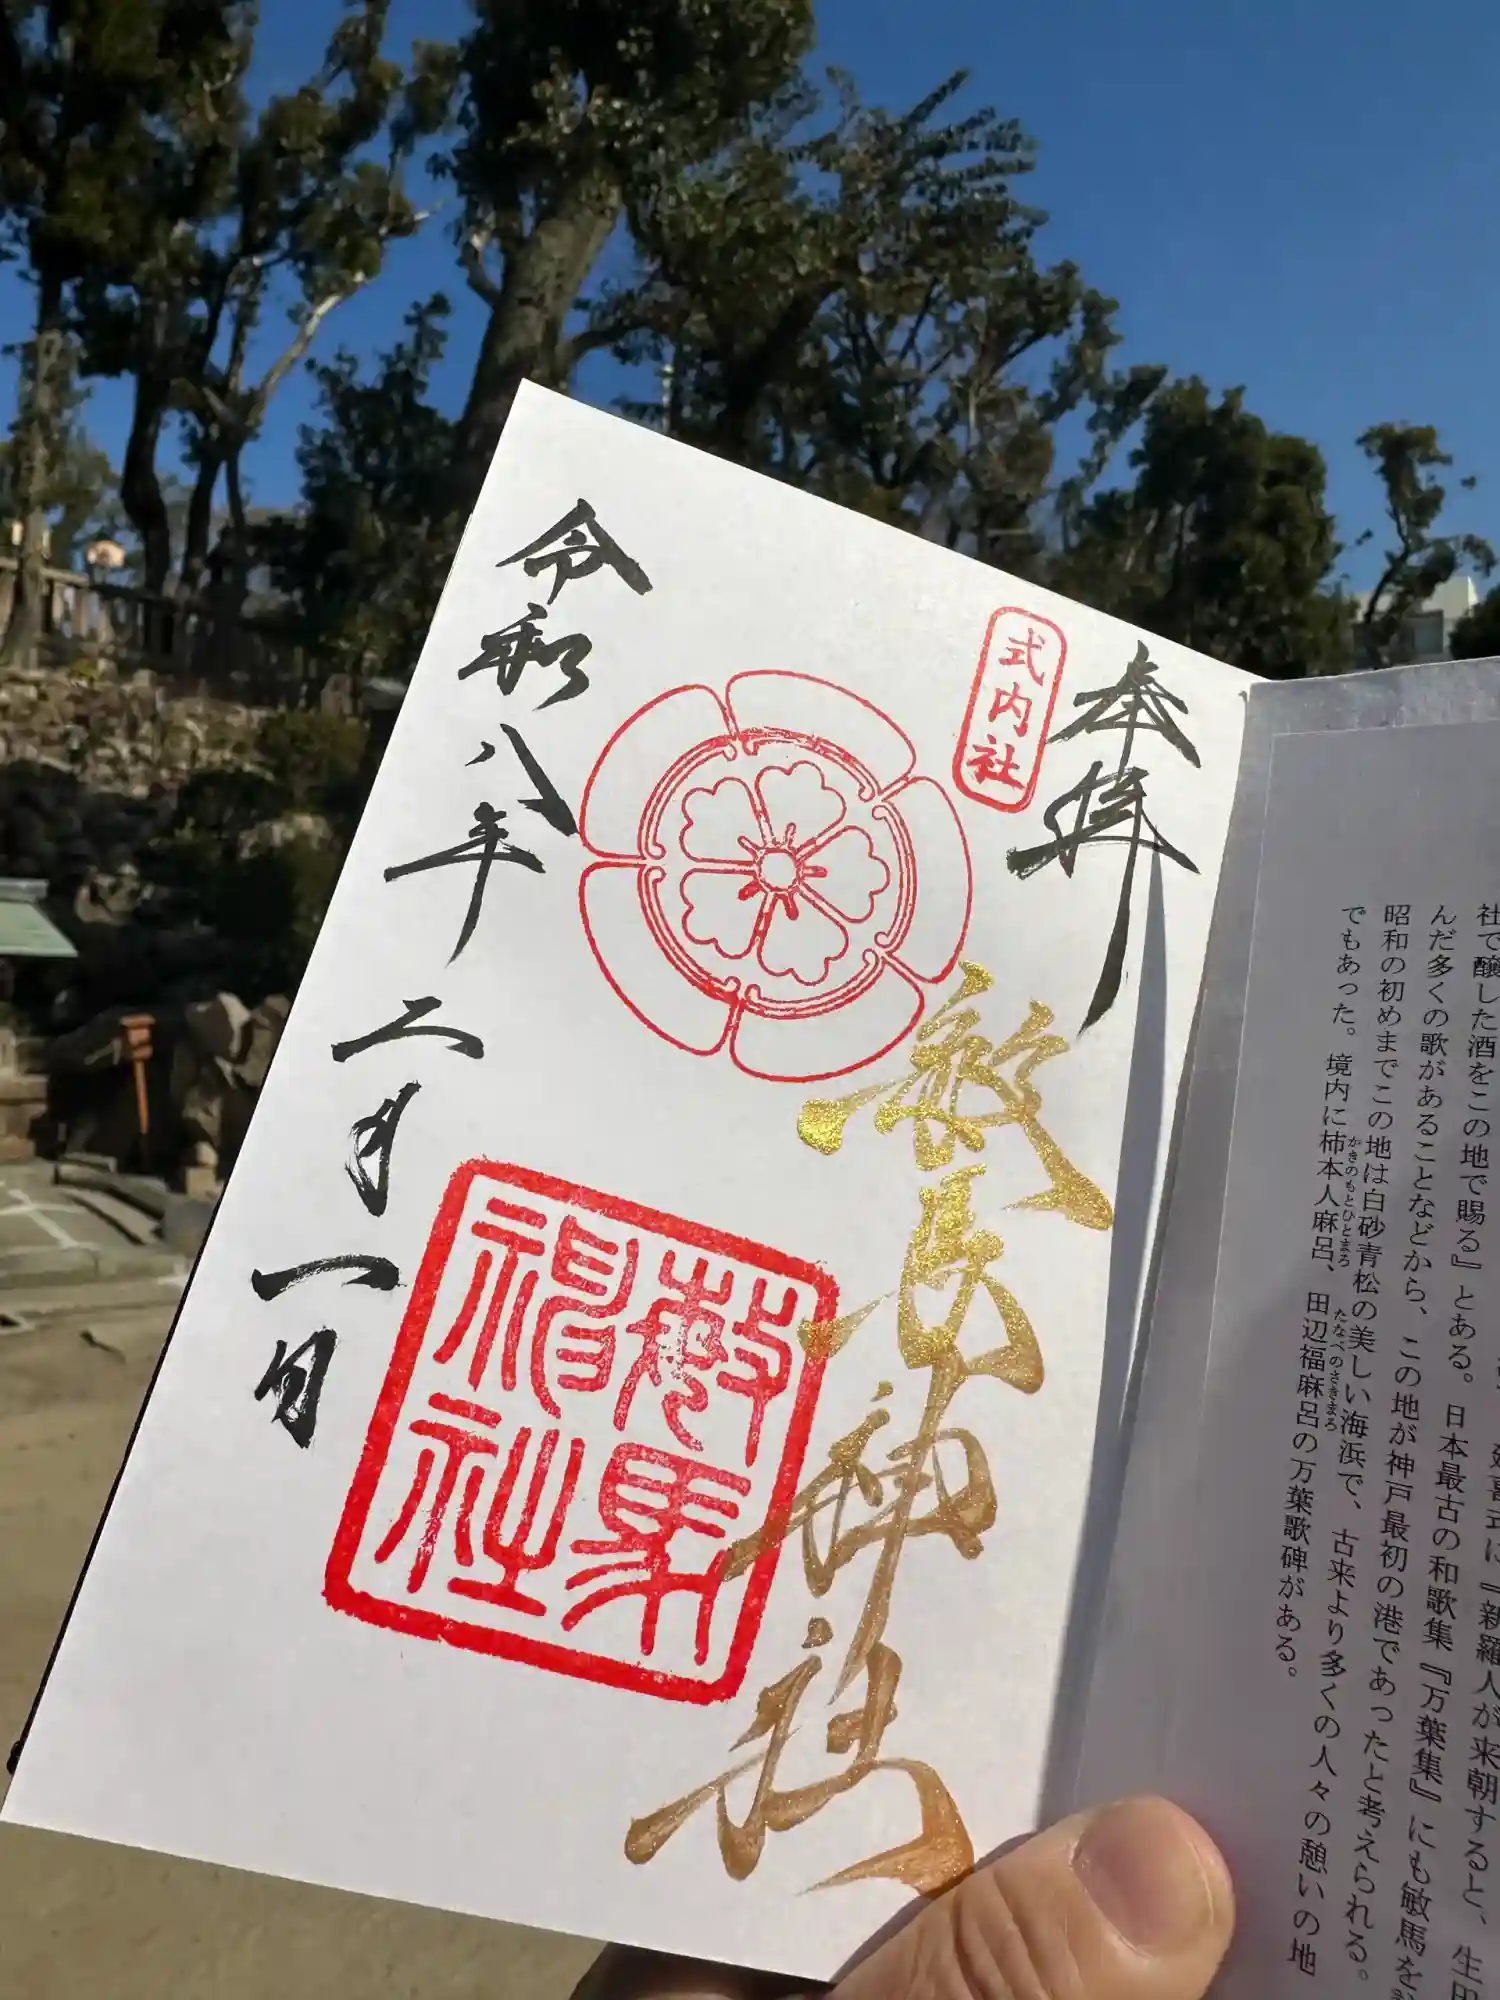 奉拝
式内社
敏馬神社
敏馬
神社
令和八年二月一日
社で醸した酒をこの地で賜る』とある。日本最古の和歌集『万葉集』にも敏馬を
んだ多くの歌があることなどから、この地が神戸最初の港であったと考えられる。
昭和の初めまでこの地は白砂青松の美しい海浜で、古来より多くの人々の憩いの地
でもあった。境内に柿本人麻呂、田辺福麻呂の万葉歌碑がある。
かきのもとひとまろ
たなべのさきまろ